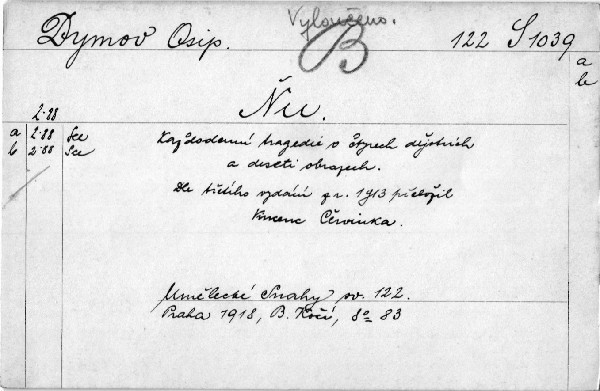 Vyloučeno.
B
Dymov Osip. 122 S 1039
a
b
2-88
Ňu.
a 2-88 Sce
b 2-88 Sce
Každodenní tragedie o čtyrech dějstvích
a deseti obrazech.
Dle třetího vydání z r. 1913 přeložil
Vincenc Červinka.
Umělecké Snahy sv. 122.
Praha 1918, B. Kočí, 8° 83